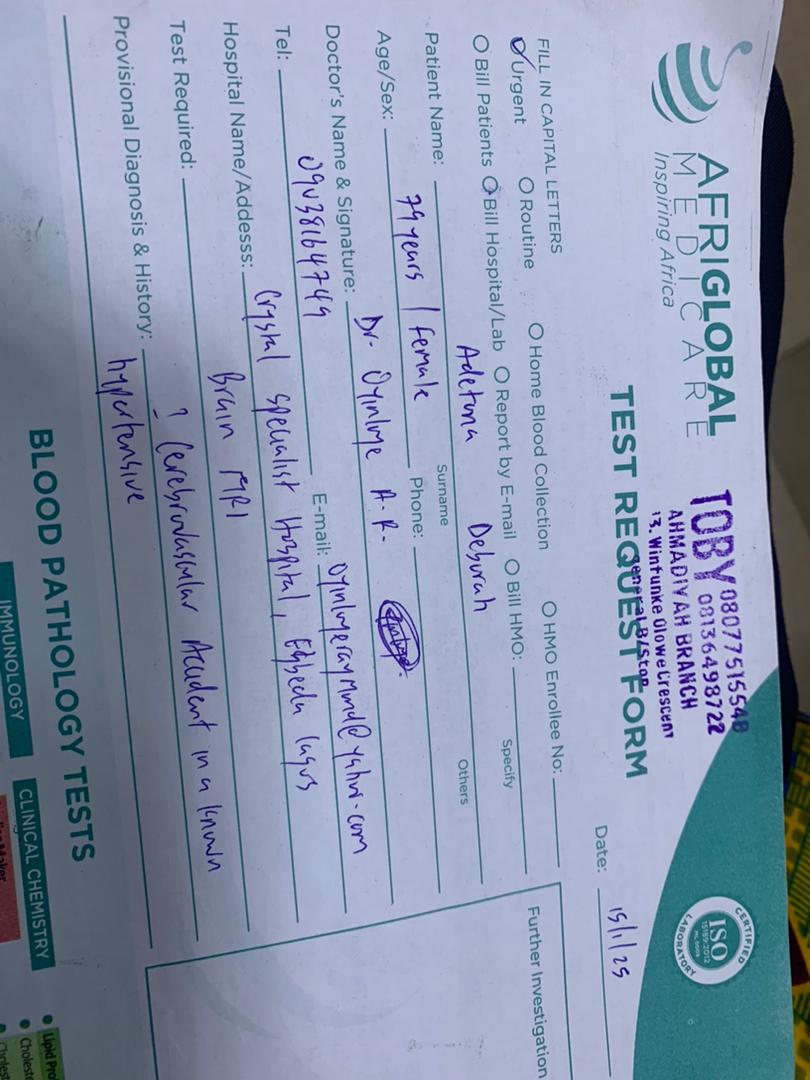 AFRIGLOBAL
MEDICARE
Inspiring Africa
TOBY 08077515548
08136498722
AHMADIYAH BRANCH
13, Winfunke Olowe Crescent
General B/Stop
TEST REQUEST FORM
CERTIFIED
ISO
15189:2012
LABORATORY
Date: 15/1/25
FILL IN CAPITAL LETTERS
Urgent Routine Home Blood Collection HMO Enrollee No:
Bill Patients Bill Hospital/Lab Report by E-mail Bill HMO:
Specify
Patient Name: Adetona Deborah
Surname Others
Age/Sex: 79 years / female Phone:
Doctor's Name & Signature: Dr. Oyinloye A.R.
Tel: 09038164749 E-mail: oyinloyeraymond@yahoo.com
Hospital Name/Addesss: Crystal specialist Hospital, Egbeda lagos
Test Required: Brain MRI
Provisional Diagnosis & History: ? Cerebrovascular Accident in a known
hypertensive
Further Investigation
BLOOD PATHOLOGY TESTS
IMMUNOLOGY
CLINICAL CHEMISTRY
Lipid Pro
Cholest
Cholest